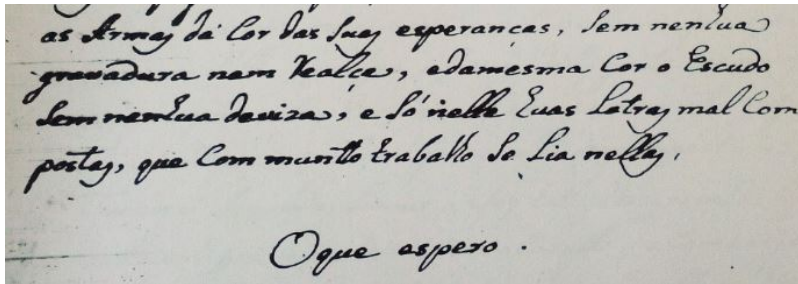 as Armas da Cor das suas esperancas, sem nenhua
gravadura nem Realce, edamesma Cor o Escudo
sem nenhua deviza, e só nelle huas Letras mal Com
postas, que Com muntto trabalho se lia nellas,
Oque espero.